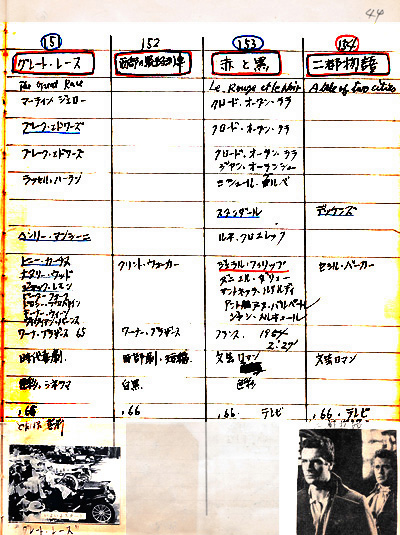 44
151
152
153
154
グレート・レース
赤と黒
二都物語
The Great Race
Le Rouge et le Noir
A tale of two cities
マーティン ジュロー
クロード・オータン・ララ
ブレーク・エドワーズ
クロード・オータン・ララ
ブレーク・エドワーズ
クロード・オータン・ララ
ジャン・オーランシュ
ラッセル・ハーラン
ミシェル・ケルベ
スタンダール
ディケンズ
ヘンリー・マンシーニ
ルネ・クロエレック
トニー・カーチス
ナタリー・ウッド
ジャック・レモン
ピーター・フォーク
キーナン・ウィン
クリント・ウォーカー
ジェラル・フィリップ
ダニエル・ダリュー
アントネッラ・ルアルディ
ジャン・メルキュール
セシル・パーカー
ワーナー・ブラザース 65
ワーナー・ブラザース
フランス 1954
2:27
時代喜劇
西部劇・短篇
文芸ロマン
文芸ロマン
色彩、シネマ
白黒
色彩
.66
.66
.66. テレビ
.66. テレビ
"グレート・レース"